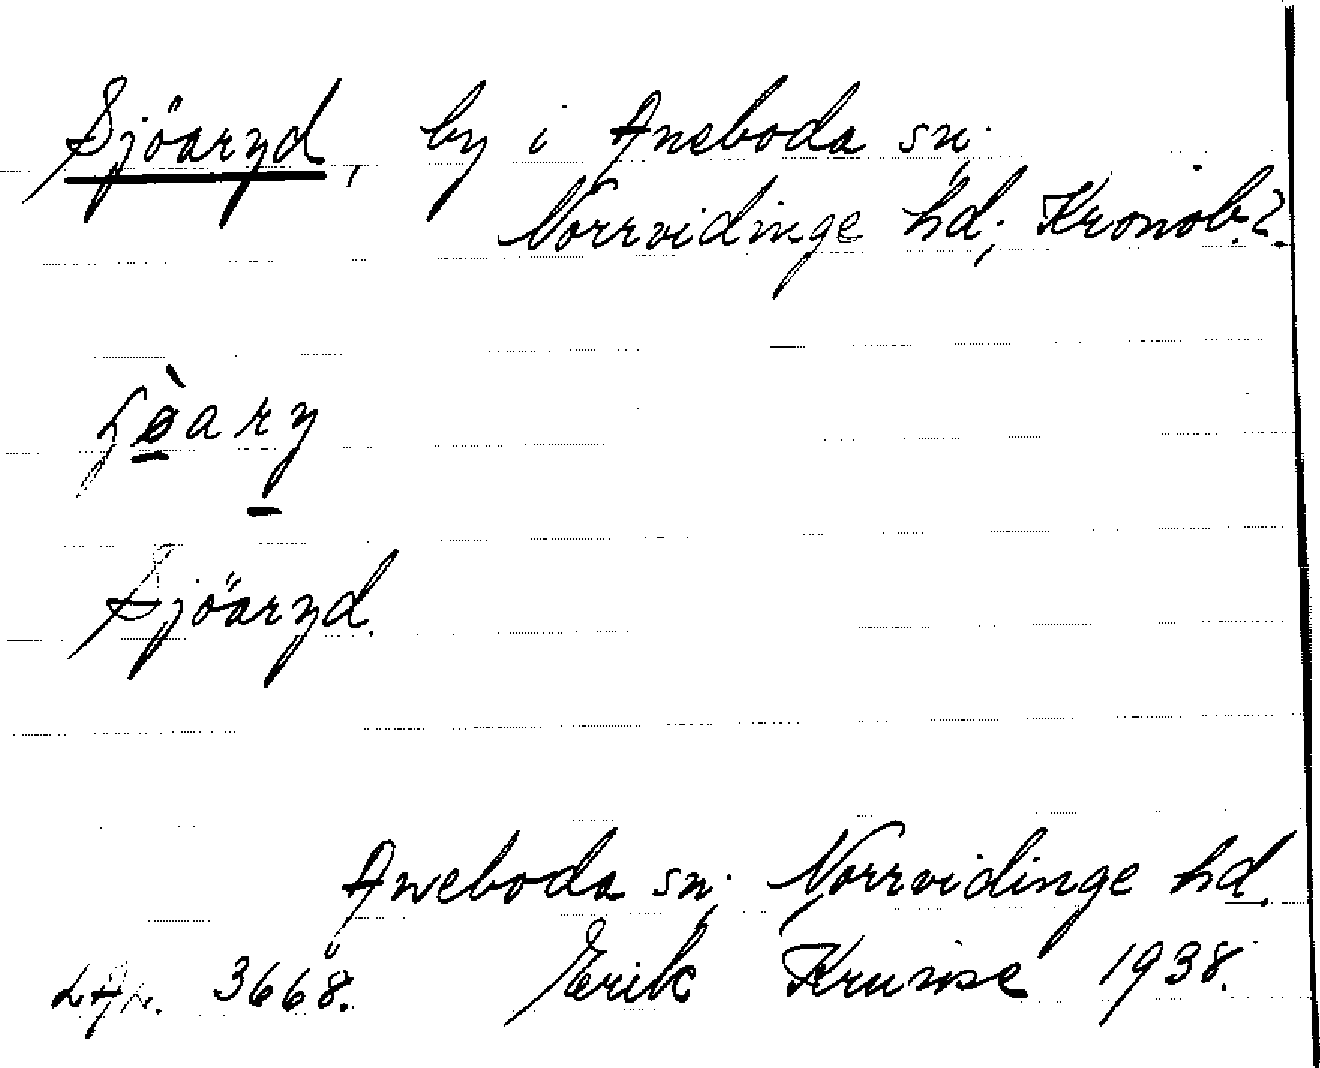 Sjöaryd, by i Aneboda sn.
Norrvidinge hd; Kronob.
Sjöaryd.
Aneboda sn. Norrvidinge hd.
3668. Erik 1938.